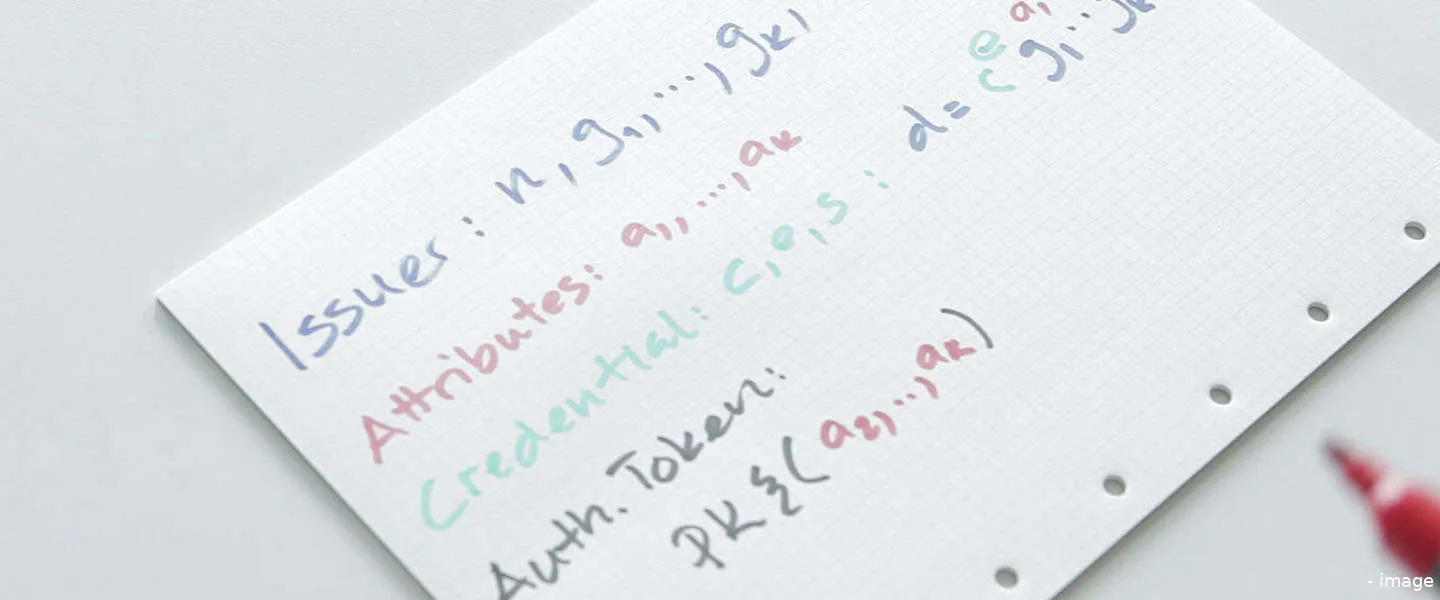 Issuer: n, g₁,...,gₖ,
Attributes: a₁,...,aₖ
Credential: c,e,s : d= cᵉ g₁ᵃ¹...gₖ
Auth. Token:
PK{(a₂,...,aₖ)
- image